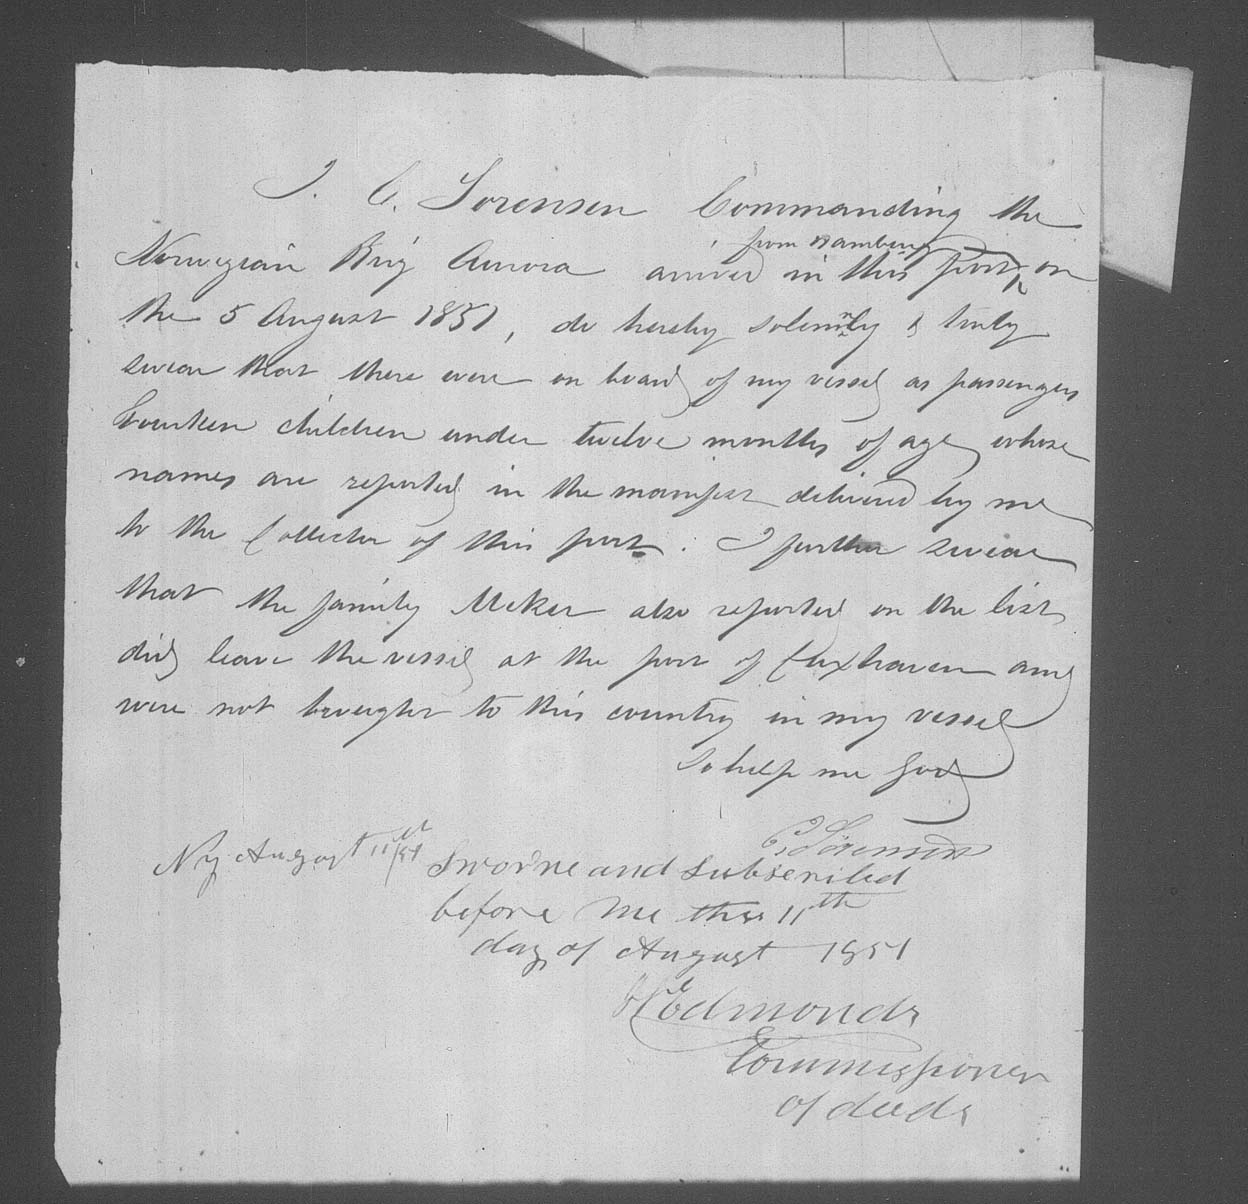 I. C. Sorensen Commanding the
Norwegian Brig Aurora arrived in this port on
from Hamburg
the 5 August 1851, do hereby solemnly & truly
swear that there were on board of my vessel as passengers
fourteen children under twelve months of age whose
names are reported in the manifest delivered by me
to the Collector of this port. I further swear
that the family Meker also reported on the list
did leave the vessel at the port of Cuxhaven and
were not brought to this country in my vessel
So help me God
C. Sörensen
Ny August 11th/51
Sworne and subscribed
before me this 11th
day of August 1851
Edmonds
Commissioner
of deeds